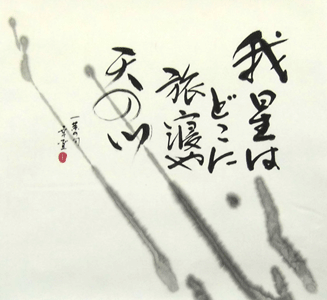 我星は
どこに
旅寝や
天の川
一茶の句